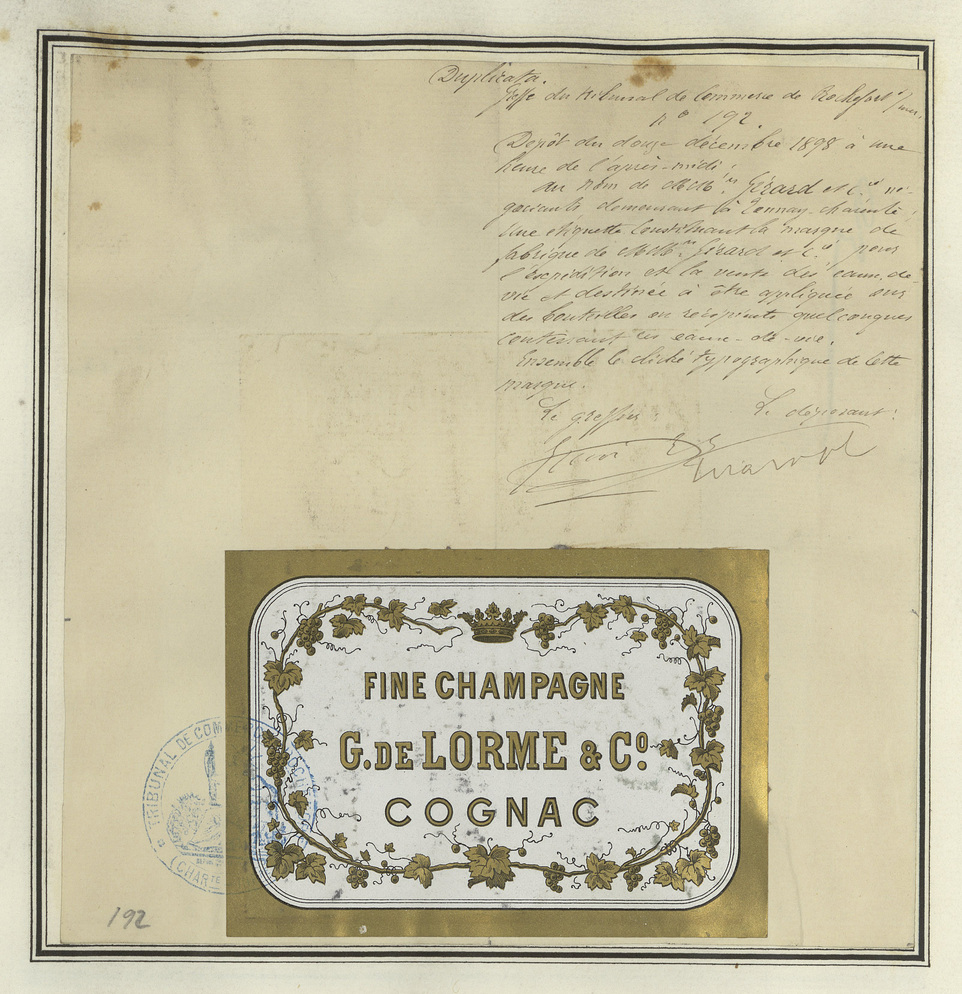 Duplicata.
Greffe du tribunal de Commerce de Rochefort s/ mer.
n° 192.
Dépôt du douze décembre 1898 à une
heure de l'après-midi.
au nom de MM.rs Gérard et C.ie né-
gociants demeurant à Tonnay-charente,
Une étiquette Constituant la marque de
fabrique de MM.rs Gérard et C.ie pour
l'expédition et la vente des eaux-de-
vie et destinée à être appliquée sur
des bouteilles ou récipients quelconques
contenant ces eaux-de-vie.
Ensemble le cliché typographique de cette
marque.
Le greffier: Le déposant:
FINE CHAMPAGNE
G. DE LORME & Co.
COGNAC
TRIBUNAL DE COMMERCE
(CHARTE
192